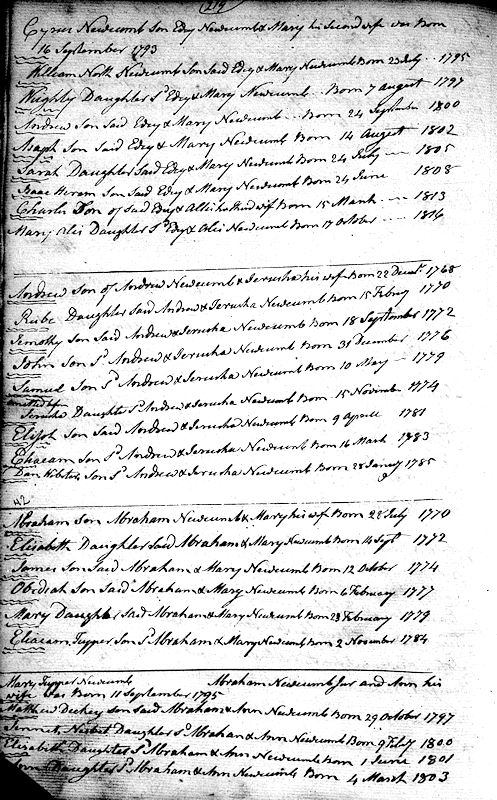 219
Cyrus Newcomb Son Edy Newcomb & Mary his Second wife was Born
16 September 1793
William North Newcomb Son Said Edy & Mary Newcomb Born 23 July 1795
Wrighty Daughter Sd Edy & Mary Newcomb Born 7 august 1797
Andrew Son Said Edey & Mary Newcomb Born 24 September 1800
Asaph Son Said Edy & Mary Newcomb Born 14 August 1802
Sarah Daughter Said Edy & Mary Newcomb Born 24 July 1805
Isaac Hiram Son Said Edy & Mary Newcomb Born 24 June 1808
Charles Son of Said Edy & Allis his third wif Born 15 March 1813
Mary Alis Daughter Sd Edy & Alis Newcomb Born 17 October 1816
Andrew Son of Andrew Newcomb & Jerusha his wif Born 22 Decmr 1768
Rube Daughter Said Andrew & Jerusha Newcomb Born 15 Febury 1770
Timothy Son Said Andrew & Jerusha Newcomb Born 18 September 1772
John Son Sd Andrew & Jerusha Newcomb Born 31 December 1776
Samuel Son Sd Andrew & Jerusha Newcomb Born 10 May 1779
Jerusha Daughter Sd Andrew & Jerusha Newcomb Born 15 November 1774
Elijah Son Said Andrew & Jerusha Newcomb Born 9 aprell 1781
Eliacam Son Sd Andrew & Jerusha Newcomb Born 16 March 1783
Dan Webster Son Sd Andrew & Jerusha Newcomb Born 28 January 1785
42
Abraham Son Abraham Newcomb & Mary his wif Born 22 July 1770
Elisabeth Daughter Said Abraham & Mary Newcomb Born 14 Sept 1772
James Son Said Abraham & Mary Newcomb Born 12 October 1774
Obediah Son Said Abraham & Mary Newcomb Born 6 February 1777
Mary Daughter Said Abraham & Mary Newcomb Born 23 February 1779
Eliacam Tupper Son Sd Abraham & Mary Newcomb Born 2 November 1784
Mary Tupper Newcomb Abraham Newcomb Jur and Ann his
wife was Born 11 September 1795
Matthew Son Said Abraham & Ann Newcomb Born 29 October 1797
Jennet Nesbet Daughter Sd Abraham & Ann Newcomb Born 9 Febry 1800
Elizabeth Daughter Sd Abraham & Ann Newcomb Born 1 June 1801
Daughter Sd Abraham & Ann Newcomb Born 4 March 1803